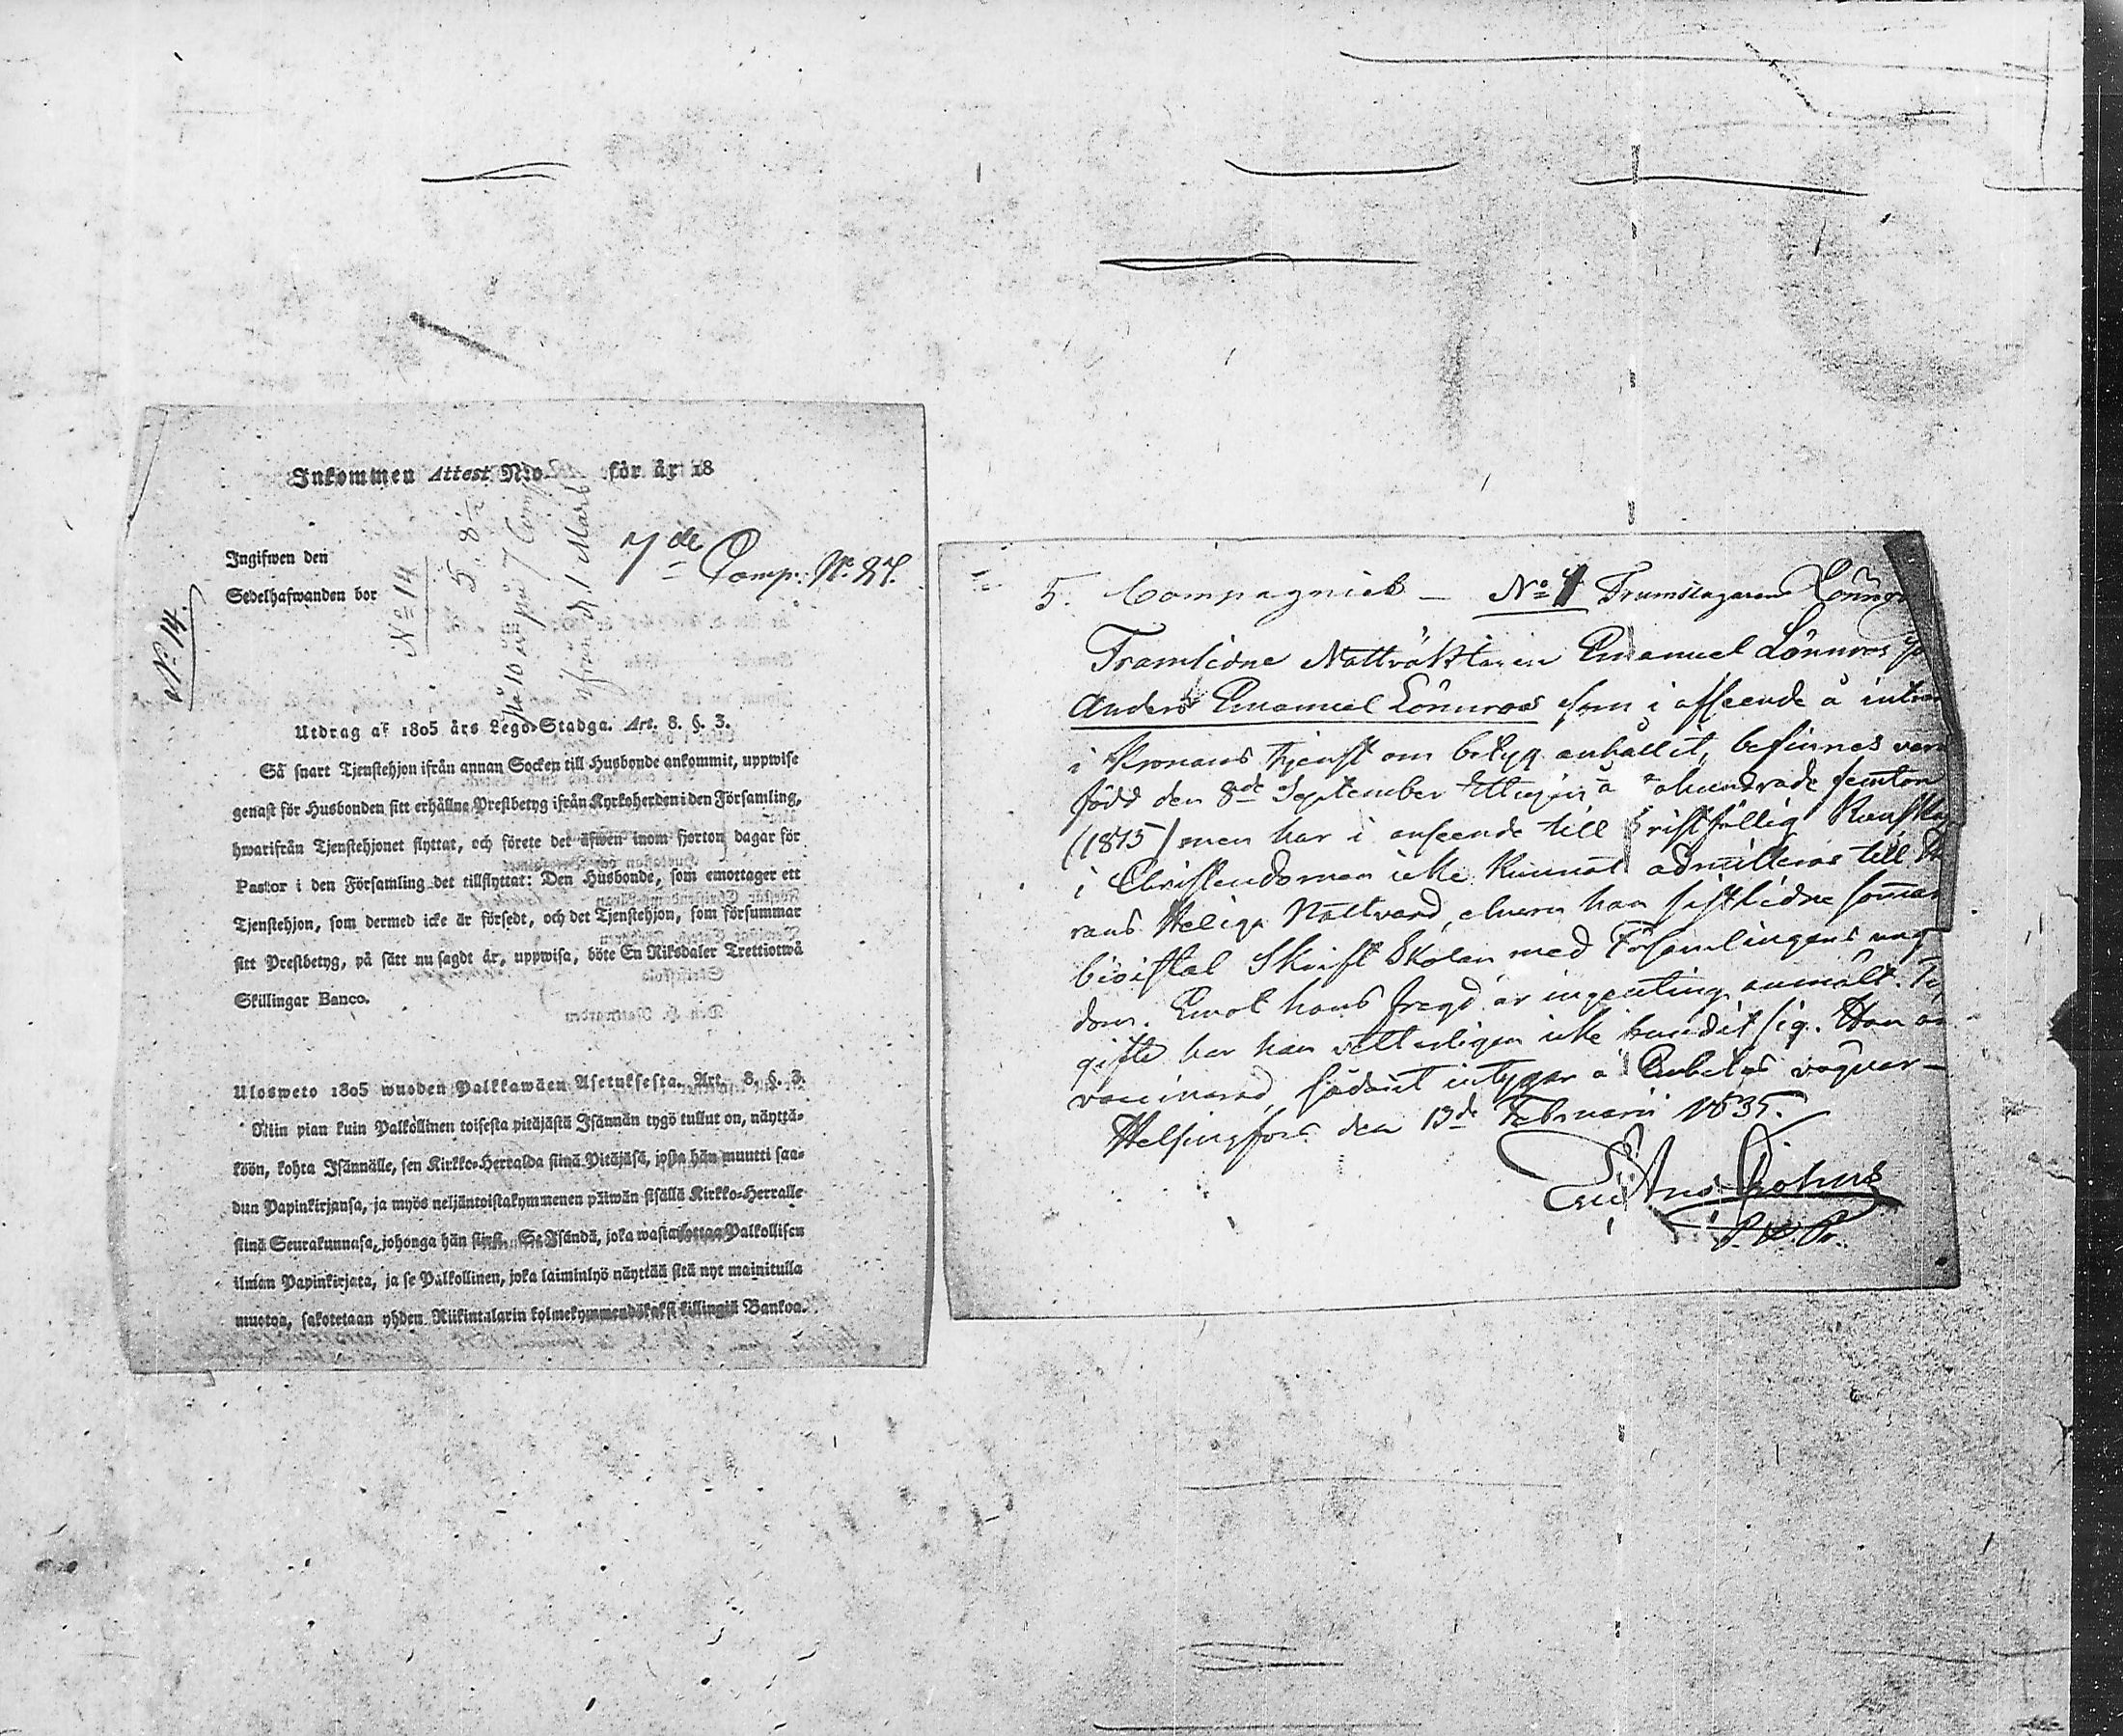 Inkommen Attest No. för år 18
Ingifwen den
Sedelhafwanden bor
7de Comp: No 87.
No 14.
No 14
5. 8
Utdrag af 1805 års Lego-Stadga. Art. 8. §. 3.
Så snart Tjenstehjon ifrån annan Socken till Husbonde ankommit, uppwise
genast för Husbonden sitt erhållne Prestbetyg ifrån Kyrkoherden i den Församling,
hwarifrån Tjenstehjonet flyttat, och förete det äfwen inom fjorton dagar för
Pastor i den Församling det tillflyttat: Den Husbonde, som emottager ett
Tjenstehjon, som dermed icke är försedt, och det Tjenstehjon, som försummar
sitt Prestbetyg, på sätt nu sagdt är, uppwisa, böte En Riksdaler Trettiotwå
Skillingar Banco.
Ulosweto 1805 wuoden Palkkawäen Asetuksesta. Art. 8. §. 3.
Niin pian kuin Palkollinen toisesta pitäjästä Isännän tygö tullut on, näyttä-
köön, kohta Isännälle, sen Kirkko-Herralda siinä Pitäjäsä, josta hän muutti saa-
dun Papinkirjansa, ja myös neljäntoistakymmenen päiwän sisällä Kirkko-Herralle
siinä Seurakunnasa, johonga hän siirsi. Se Isändä, joka wastanottaa Palkollisen
ilman Papinkirjata, ja se Palkollinen, joka laiminlyö näyttää sitä nyt mainitulla
muotoa, sakotetaan yhden Riikintalarin kolmekymmendäkaksi killingiä Bankoa.
5. Compagniet – No 1 Trumslagaren
Framlidne Nattväktaren Emanuel Lönnroos
Anders Emanuel Lönnroos som i afseende å
i Kronans tjenst om betyg anhållit, befinnes
född den 8de September femton
(1815) men har i anseende till Kunskap
i Christendomen icke kunnat admitteras till
rans Heliga Nattvard, han sistledne
bivistat Skrift Skolan med Församlingens ung
dom. Emot hans fregd är ingenting anmält. Til
gifte har han vetterligen icke bundit sig. Han är
vaccinerad, sådant intygar å Embetes vägnar –
Helsingfors den 13de Februarii 1835.